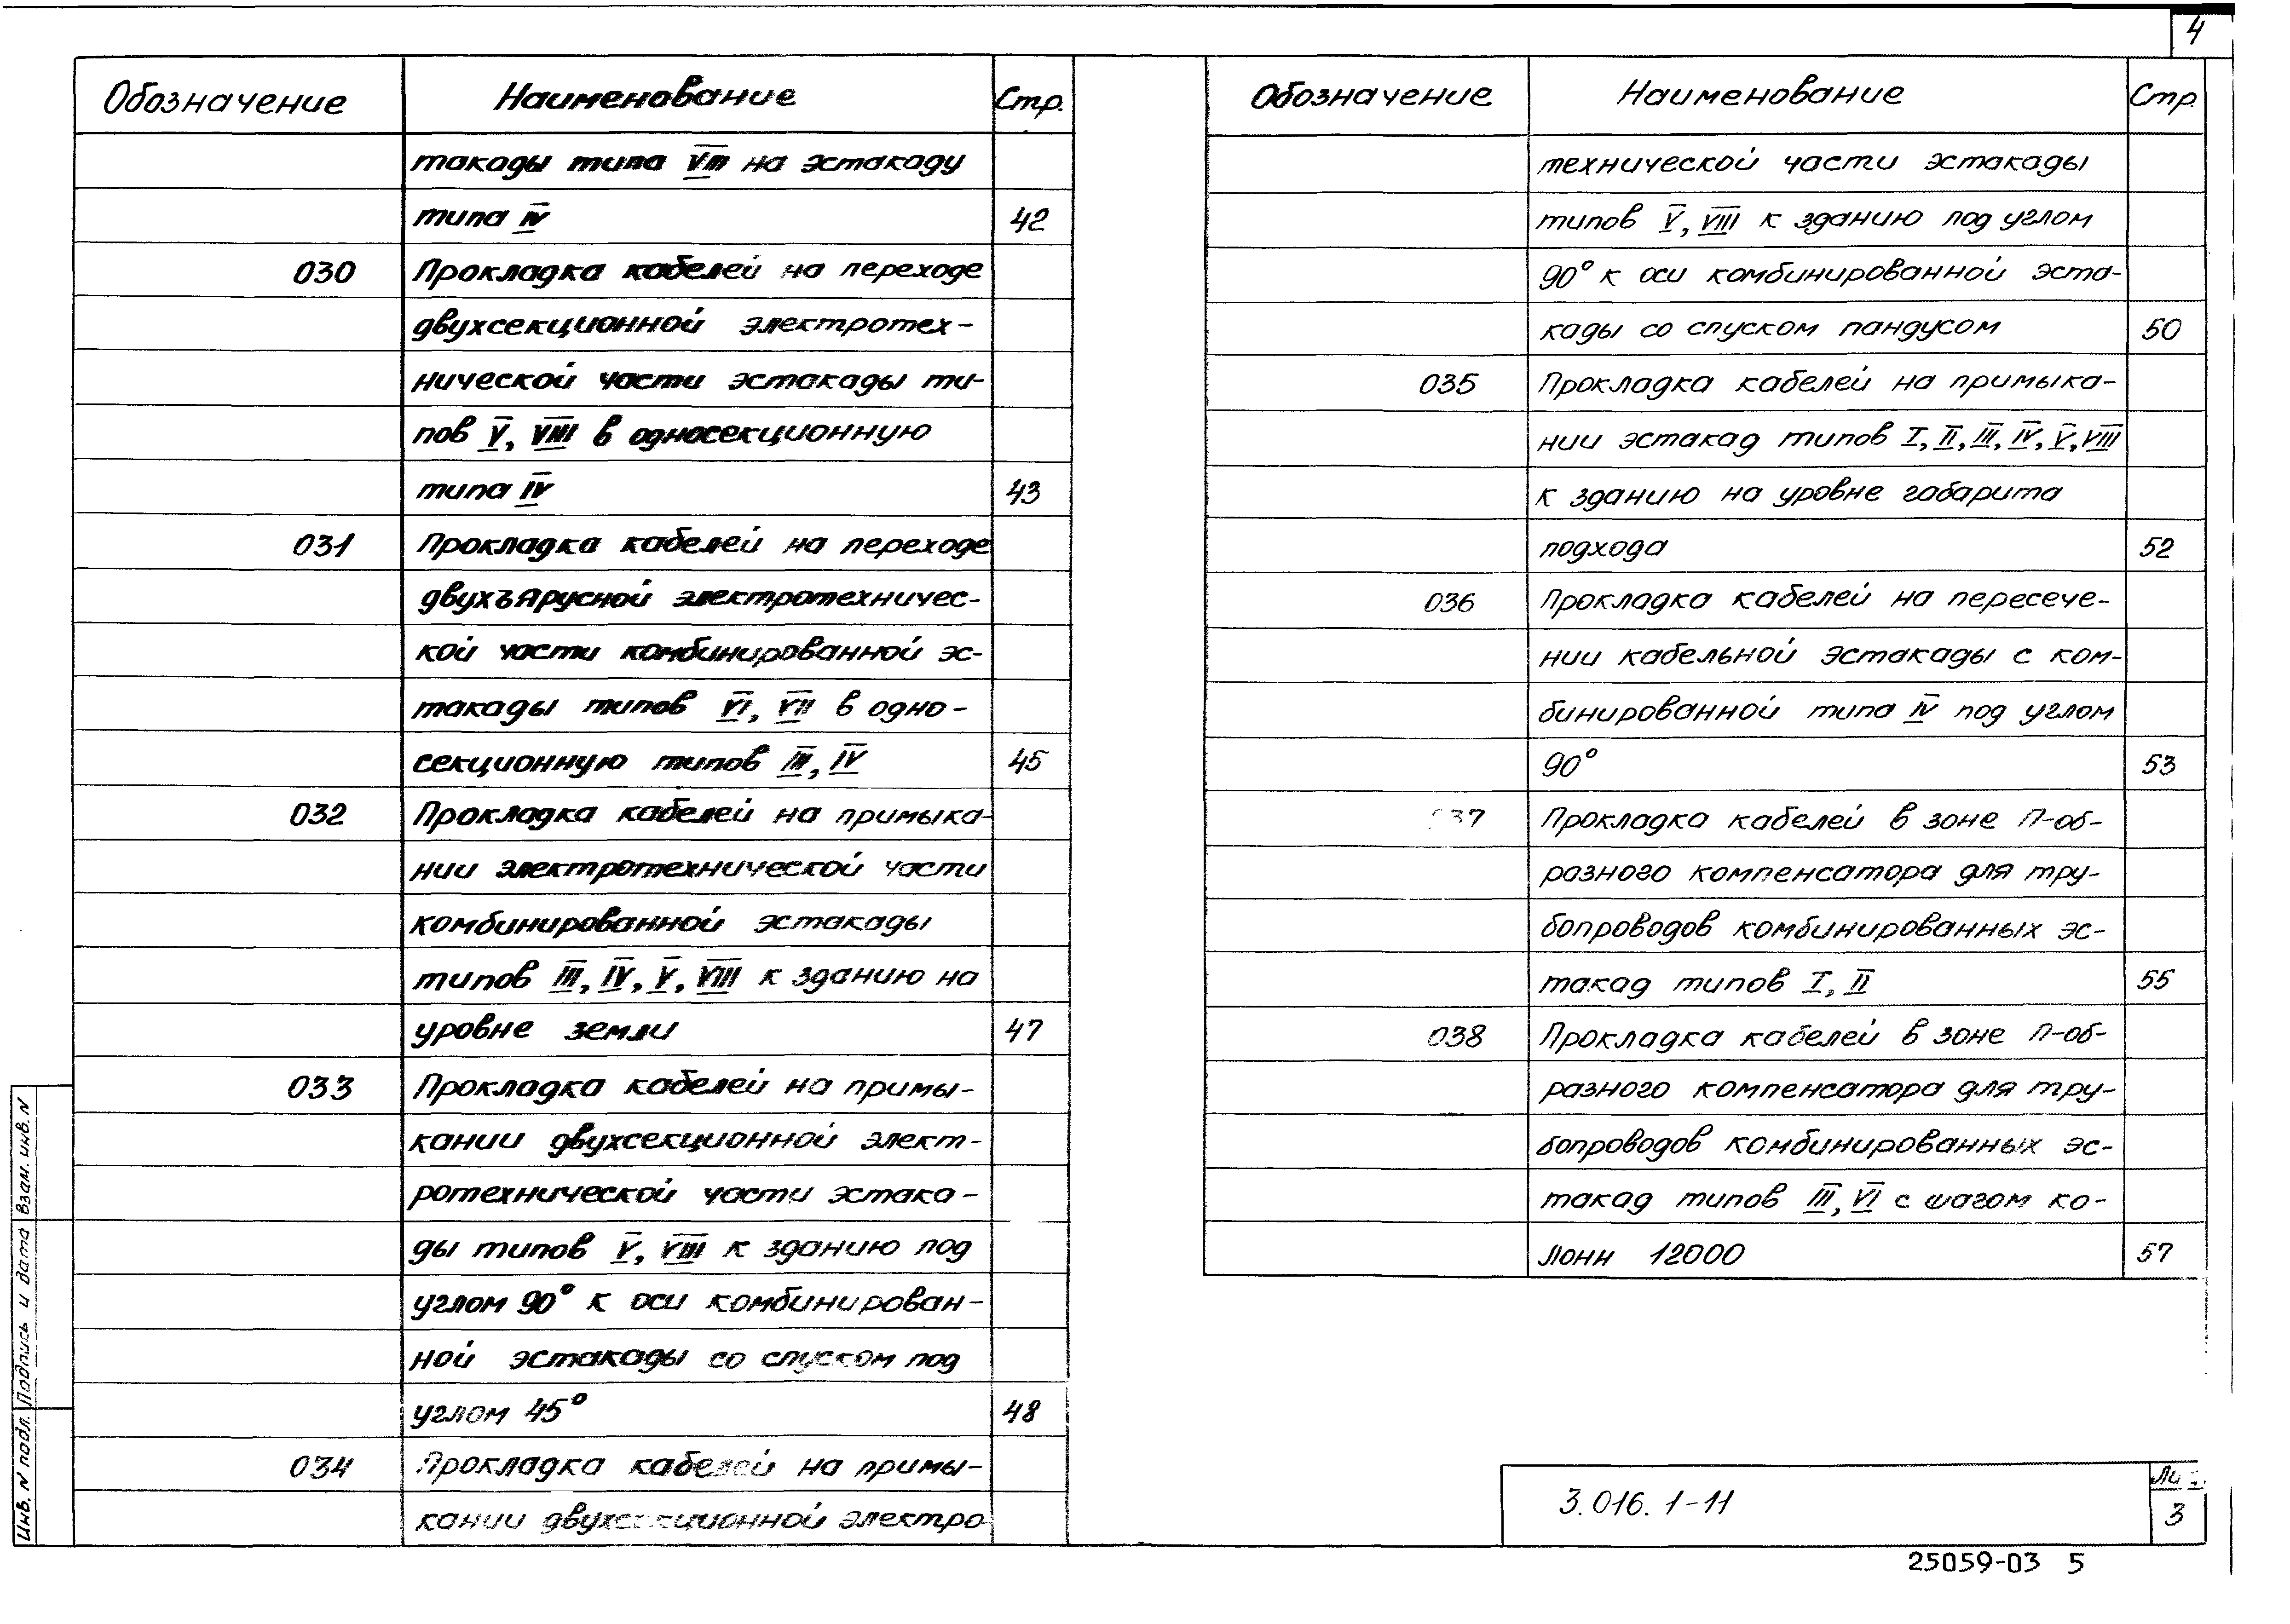 4
Обозначение Наименование Стр.
такады типа VIII на эстакаду
типа IV 42
030 Прокладка кабелей на переходе
двухсекционной электротех-
нической части эстакады ти-
пов V, VIII в односекционную
типа IV 43
031 Прокладка кабелей на переходе
двухъярусной электротехничес-
кой части комбинированной эс-
такады типов VI, VII в одно-
секционную типов III, IV 45
032 Прокладка кабелей на примыка-
нии электротехнической части
комбинированной эстакады
типов III, IV, V, VIII к зданию на
уровне земли 47
033 Прокладка кабелей на примы-
кании двухсекционной элект-
ротехнической части эстака-
ды типов V, VIII к зданию под
углом 90° к оси комбинирован-
ной эстакады со спуском под
углом 45° 48
034 Прокладка кабелей на примы-
кании двухсекционной электро
Обозначение Наименование Стр
технической части эстакады
типов V, VIII к зданию под углом
90° к оси комбинированной эста-
кады со спуском пандусом 50
035 Прокладка кабелей на примыка-
нии эстакад типов I, II, III, IV, V, VIII
к зданию на уровне габарита
подхода 52
036 Прокладка кабелей на пересече-
нии кабельной эстакады с ком-
бинированной типа IV под углом
90° 53
037 Прокладка кабелей в зоне П-об-
разного компенсатора для тру-
бопроводов комбинированных эс-
такад типов I, II 55
038 Прокладка кабелей в зоне П-об-
разного компенсатора для тру-
бопроводов комбинированных эс-
такад типов III, VI с шагом ко-
лонн 12000 57
Инв. N подл. Подпись и дата Взам. инв. N
3.016.1-11
3
25059-03 5